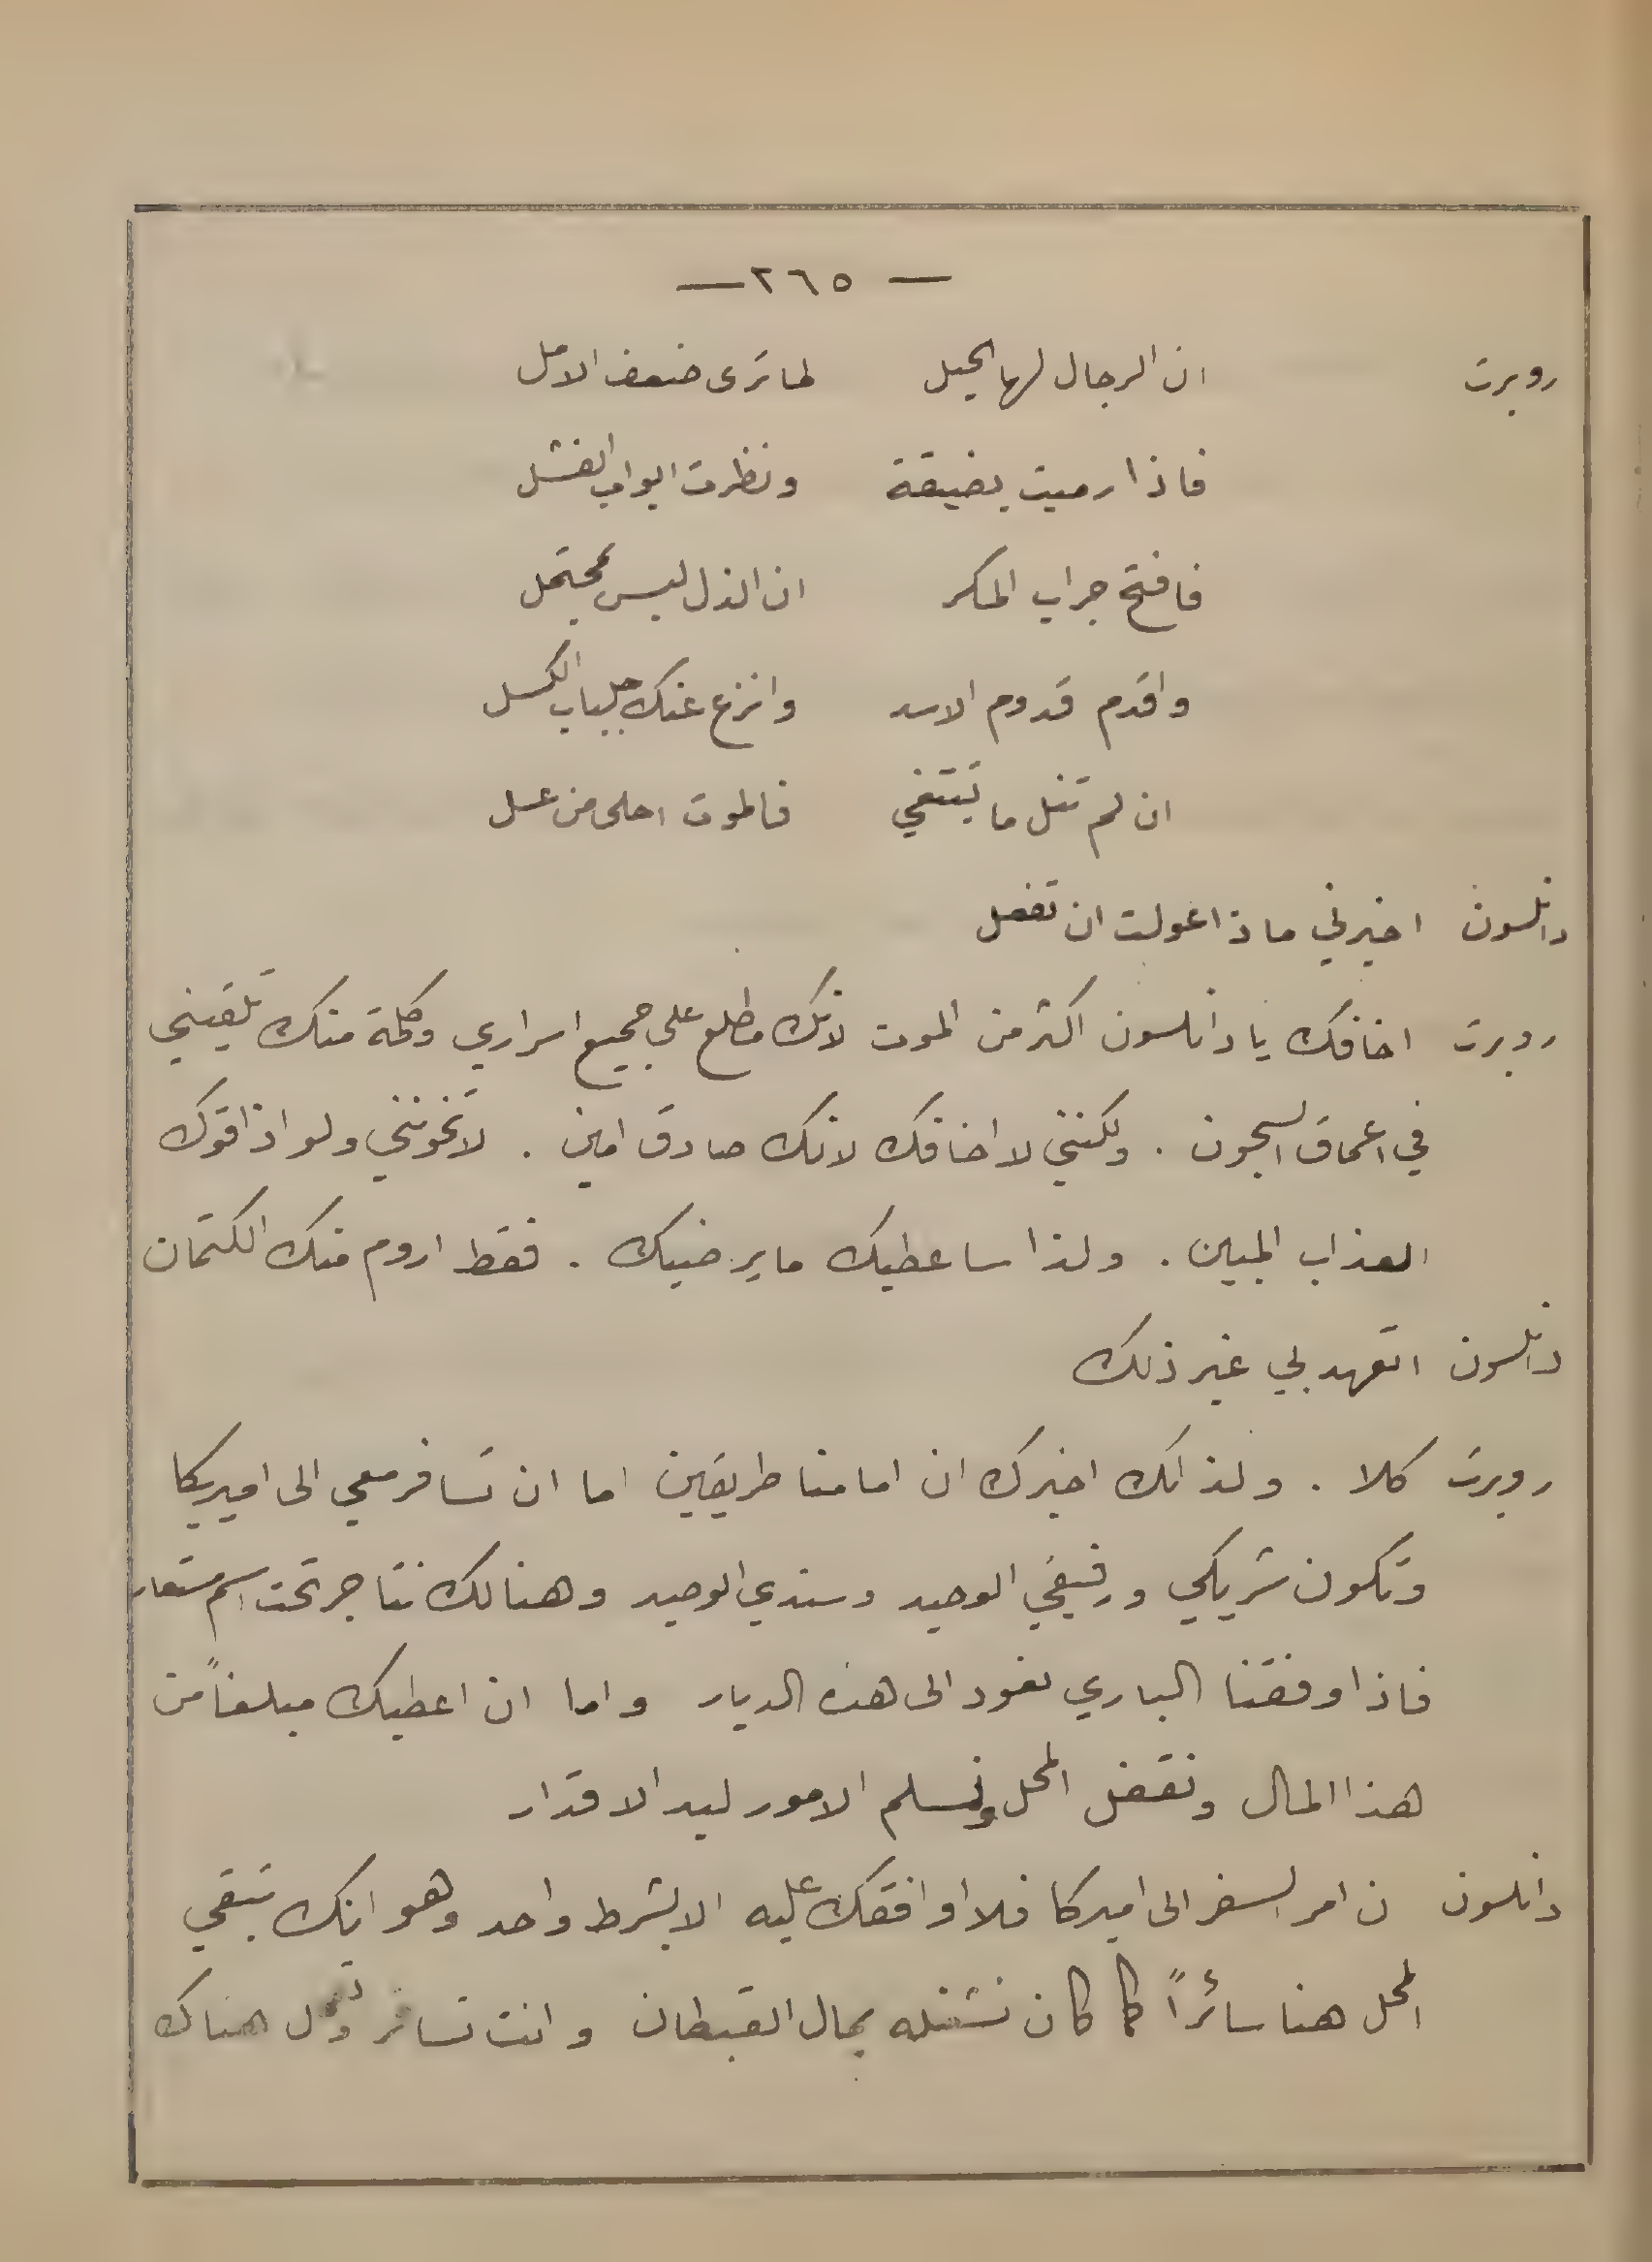 — ٢٦٥ —
روبرت ان الرجال لها الحيل لما ترى ضعف الامل
فاذا رميت بضيقة ونظرت ابواب الفشل
فافتح جراب المكر ان الذل ليس محتمل
واقدم قدوم الاسد وانزع عنك جلباب الكسل
ان لم تنل ما تبتغي فالموت احلى من عسل
دانلسون اخبرني ماذا عولت ان تفعل
روبرت اخافك يا دانلسون اكثر من الموت لانك مطلع على جميع اسراري وكلمة منك تلقيني
في اعماق السجون . ولكنني لا اخافك لانك صادق امين . لا تخونني ولو اذاقوك
العذاب المبين . ولذا ساعطيك ما يرضيك . فقط اروم منك الكتمان
دانلسون اتعهد بي غير ذلك
روبرت كلا . ولذلك اخبرك ان امامنا طريقين اما ان تسافر معي الى اميريكا
وتكون شريكي ورفيقي الوحيد وسندي الوحيد وهنالك نتاجر تحت اسم مستعار
فاذا وفقنا الباري نعود الى هذه الديار واما ان اعطيك مبلغاً من
هذا المال ونقفل المحل ونسلم الامور ليد الاقدار
دانلسون ن امر السفر الى اميركا فلا اوافقك عليه الا بشرط واحد وهو انك تبقي
المحل هنا سائراً كما كان نشغله بمال القبطان وانت تسافر هناك